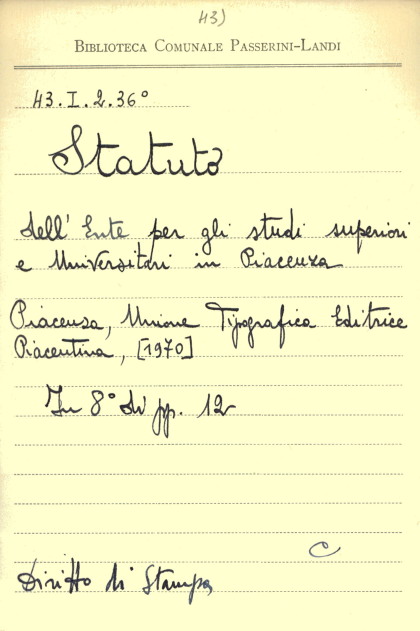 43)
BIBLIOTECA COMUNALE PASSERINI-LANDI
43.I.2.36°
Statuto
dell'Ente per gli studi superiori
e Universitari in Piacenza
Piacenza, Unione Tipografica Editrice
Piacentina, [1970]
In 8° di pp. 12
C
Diritto di Stampa